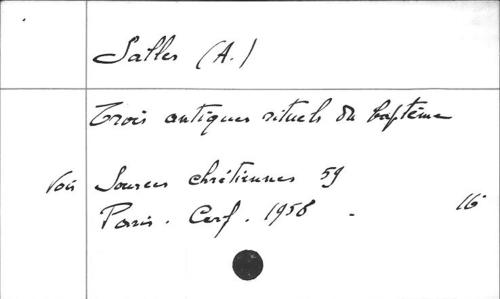 Salles (A.)
Trois antiques rituels du baptême
Voir Sources chrétiennes 59
Paris. Cerf. 1958 - 16